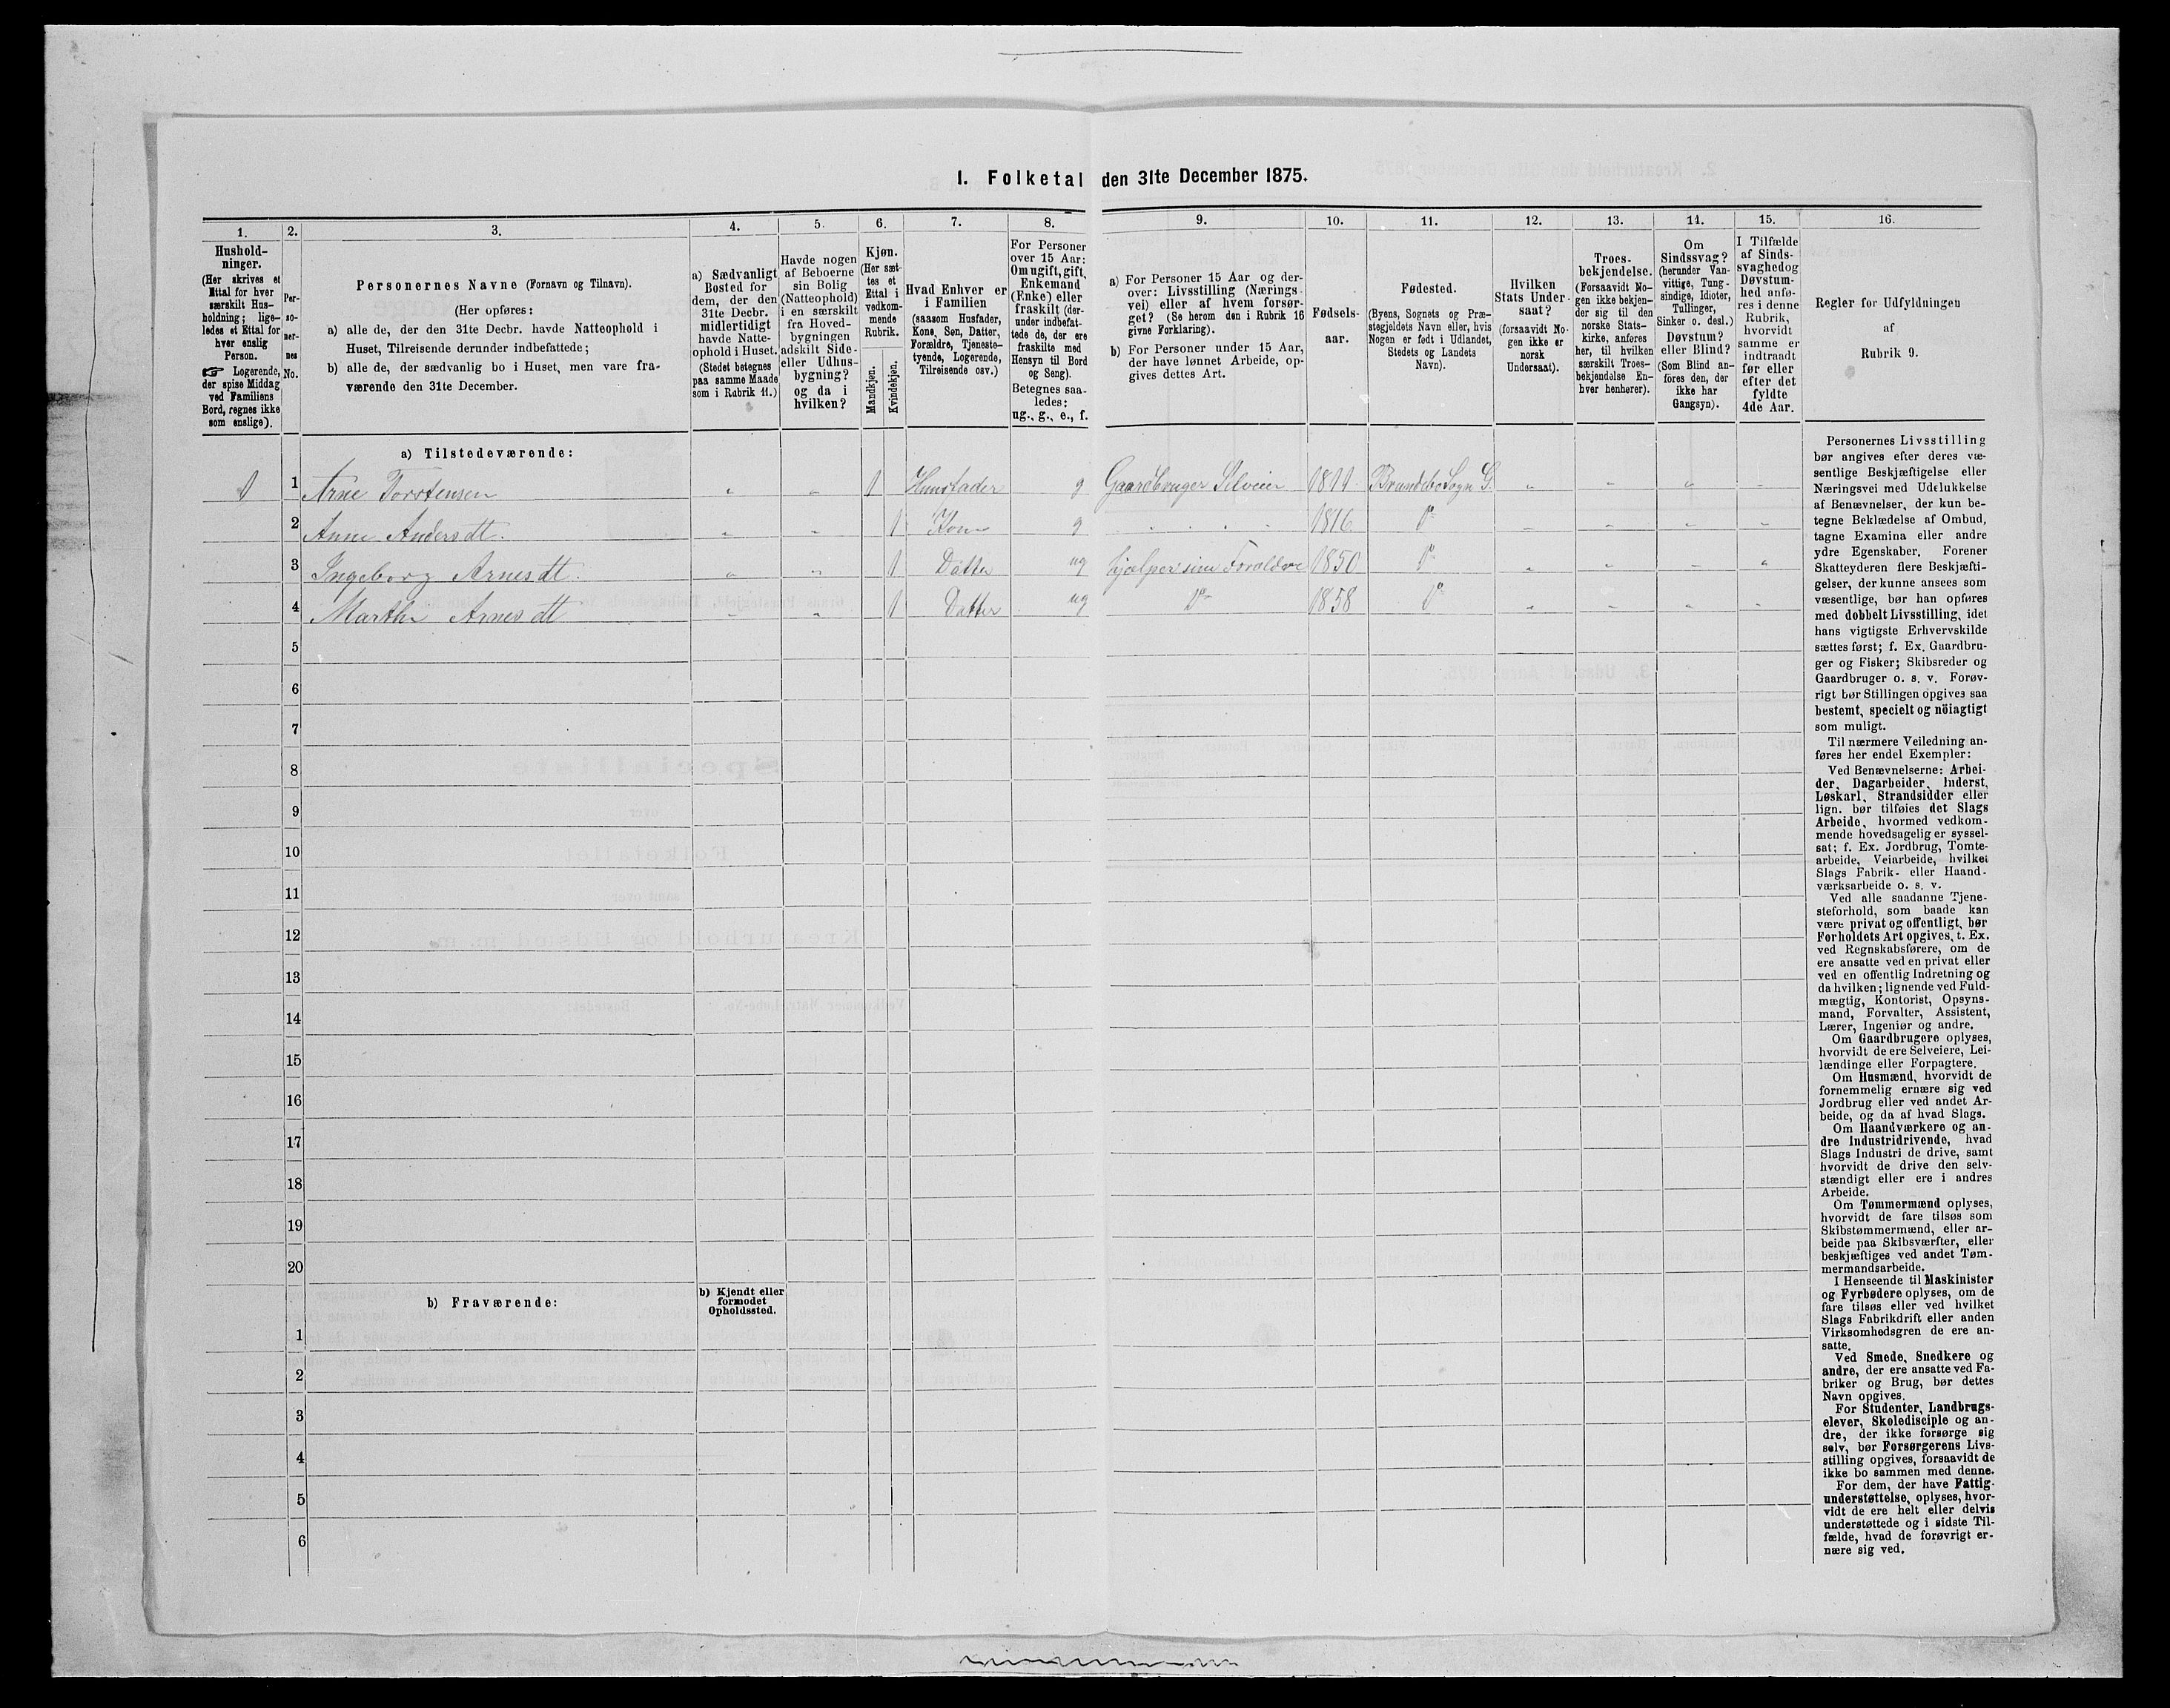 I. Folketal den 31te December 1875.
1.
Hushold-
ninger.
(Her skrives et
Ettal for hver
særskilt Hus-
holdning; lige-
ledes et Ettal for
hver enslig
Person.
☞ Logerende,
der spise Middag
ved Familiens
Bord, regnes ikke
som enslige).
2.
Per-
so-
ner-
nes
No.
3.
Personernes Navne (Fornavn og Tilnavn).
(Her opføres:
a) alle de, der den 31te Decbr. havde Natteophold i
Huset, Tilreisende derunder indbefattede;
b) alle de, der sædvanlig bo i Huset, men vare fra-
værende den 31te December.
4.
a) Sædvanligt
Bosted for
dem, der den
31te Decbr.
midlertidigt
havde Natte-
ophold i Huset.
(Stedet betegnes
paa samme Maade
som i Rubrik 11.)
5.
Havde nogen
af Beboerne
sin Bolig
(Natteophold)
i en særskilt
fra Hoved-
bygningen
adskilt Side-
eller Udhus-
bygning?
og da i
hvilken?
6.
Kjøn.
(Her sæt-
tes et
Ettal i
vedkom-
mende
Rubrik.
Mandkjøn.
Kvindekjøn.
7.
Hvad Enhver er
i Familien
(saasom Husfader,
Kone, Søn, Datter,
Forældre, Tjeneste-
tyende, Logerende,
Tilreisende osv.)
8.
For Personer
over 15 Aar:
Om ugift, gift,
Enkemand
(Enke) eller
fraskilt (der-
under indbefat-
tede de, der ere
fraskilte med
Hensyn til Bord
og Seng).
Betegnes saa-
ledes:
ug., g., e., f.
9.
a) For Personer 15 Aar og der-
over: Livsstilling (Nærings-
vei) eller af hvem forsør-
get? (Se herom den i Rubrik 16
givne Forklaring).
b) For Personer under 15 Aar,
der have lønnet Arbeide, op-
gives dettes Art.
10.
Fødsels-
aar.
11.
Fødested.
(Byens, Sognets og Præ-
stegjeldets Navn eller, hvis
Nogen er født i Udlandet,
Stedets og Landets
Navn).
12.
Hvilken
Stats Under-
saat?
(forsaavidt No-
gen ikke er
norsk
Undersaat).
13.
Troes-
bekjendelse.
(Forsaavidt No-
gen ikke bekjen-
der sig til den
norske Stats-
kirke, anføres
her, til hvilken
særskilt Troes-
bekjendelse En-
hver henhører).
14.
Om
Sindssvag?
(herunder Van-
vittige, Tung-
sindige, Idioter,
Tullinger,
Sinker o. desl.)
Døvstum?
eller Blind?
(Som Blind an-
føres den, der
ikke har
Gangsyn).
15.
I Tilfælde
af Sinds-
svaghed og
Døvstum-
hed anfø-
res i denne
Rubrik,
hvorvidt
samme er
indtraadt
før eller
efter det
fyldte
4de Aar.
16.
Regler for Udfyldningen
af
Rubrik 9.
a) Tilstedeværende:
1 1 Arne Torstensen " " 1 Huusfader g Gaardbruger Selveier Brundebo Sogn " " " "
2 Anne Andersdt. " " 1 Kone g " " " " 1816 Do " " " "
3 Ingeborg Arnesdt. " " 1 Datter ug hjælper sine Forældre 1850 Do " " " "
4 Marthe Arnesdt " " 1 Datter ug Do 1858 Do " " " "
5
6
7
8
9
10
11
12
13
14
15
16
17
18
19
20
b) Fraværende:
b) Kjendt eller
formodet
Opholdssted.
1
2
3
4
5
6
Personernes Livsstilling
bør angives efter deres væ-
sentlige Beskjæftigelse eller
Næringsvei med Udelukkelse
af Benævnelser, der kun be-
tegne Beklædelse af Ombud,
tagne Examina eller andre
ydre Egenskaber. Forener
Skatteyderen flere Beskjæfti-
gelser, der kunne ansees som
væsentlige, bør han opføres
med dobbelt Livsstilling, idet
hans vigtigste Erhvervskilde
sættes først; f. Ex. Gaardbru-
ger og Fisker; Skibsreder og
Gaardbruger o. s. v. Forøv-
rigt bør Stillingen opgives saa
bestemt, specielt og nöiagtigt
som muligt.
Til nærmere Veiledning an-
føres her endel Exempler:
Ved Benævnelserne: Arbei-
der, Dagarbeider, Inderst,
Løskarl, Strandsidder eller
lign. bør tilføies det Slags
Arbeide, hvormed vedkom-
mende hovedsagelig er syssel-
sat; f. Ex. Jordbrug, Tomte-
arbeide, Veiarbeide, hvilket
Slags Fabrik- eller Haand-
værksarbeide o. s. v.
Ved alle saadanne Tjene-
steforhold, som baade kan
være privat og offentligt, bør
Forholdets Art opgives, t. Ex.
ved Regnskabsførere, om de
ere ansatte ved en privat eller
ved en offentlig Indretning og
da hvilken; lignende ved Fuld-
mægtig, Kontorist, Opsyns-
mand, Forvalter, Assistent,
Lærer, Ingeniør og andre.
Om Gaardbrugere oplyses,
hvorvidt de ere Selveiere, Lei-
lændinge eller Forpagtere.
Om Husmænd, hvorvidt de
fornemmelig ernære sig ved
Jordbrug eller ved andet Ar-
beide, og da af hvad Slags.
Om Haandværkere og an-
dre Industridrivende, hvad
Slags Industri de drive, samt
hvorvidt de drive den selv-
stændigt eller ere i andres
Arbeide.
Om Tømmermænd oplyses,
hvorvidt de fare tilsøs som
Skibstømmermænd, eller ar-
beide paa Skibsværfter, eller
beskjæftiges ved andet Tøm-
mermandsarbeide.
I Henseende til Maskinister
og Fyrbødere oplyses, om de
fare tilsøs eller ved hvilket
Slags Fabrikdrift eller anden
Virksomhedsgren de ere an-
satte.
Ved Smede, Snedkere og
andre, der ere ansatte ved Fa-
briker og Brug, bør dettes
Navn opgives.
For Studenter, Landbrugs-
elever, Skoledisciple og an-
dre, der ikke forsørge sig
selv, bør Forsørgerens Livs-
stilling opgives, forsaavidt de
ikke bo sammen med denne.
For dem, der have Fattig-
understøttelse, oplyses, hvor-
vidt de ere helt eller delvis
understøttede og i sidste Til-
fælde, hvad de forøvrigt er-
nære sig ved.